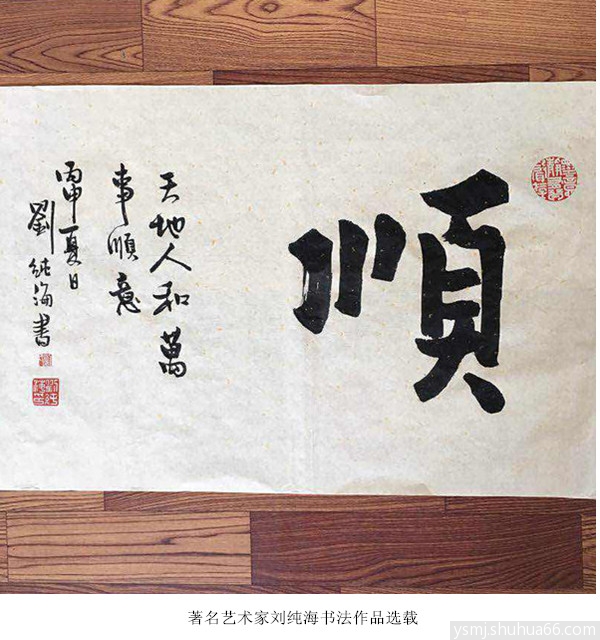 順
天地人和萬
事順意
丙申夏日
劉純海书
著名艺术家刘纯海书法作品选载
ysmj.shuhua66.com